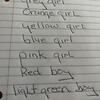 grey girl
Orange girl
yellow girl
blue girl
pink girl
Red boy
light green boy